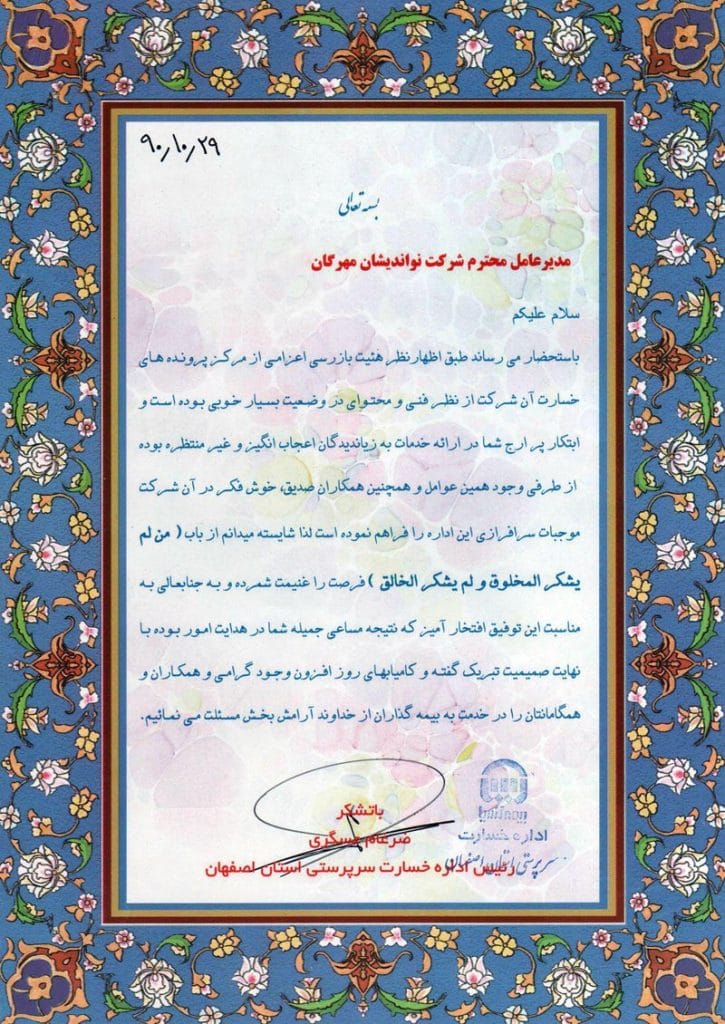 ۹۰٫۱۰٫۲۹
بسمه تعالی
مدیرعامل محترم شرکت نواندیشان مهرگان
سلام علیکم
باستحضار می رساند طبق اظهارنظر هئیت بازرسی اعزامی از مرکز پرونده های
خسارت آن شرکت از نظر فنی و محتوای در وضعیت بسیار خوبی بوده است و
ابتکار پر ارج شما در ارائه خدمات به زیاندیدگان اعجاب انگیز و غیر منتظره بوده
از طرفی وجود همین عوامل و همچنین همکاران صدیق، خوش فکر در آن شرکت
موجبات سرافرازی این اداره را فراهم نموده است لذا شایسته میدانم از باب ( من لم
یشکر المخلوق و لم یشکر الخالق ) فرصت را غنیمت شمرده و به جنابعالی به
مناسبت این توفیق افتخار آمیز که نتیجه مساعی جمیله شما در هدایت امور بوده با
نهایت صمیمیت تبریک گفته و کامیابهای روز افزون وجود گرامی و همکاران و
همگامانتان را در خدمت به بیمه گذاران از خداوند آرامش بخش مسئلت می نمائیم.
باتشکر
ضرغام عسگری
رئیس اداره خسارت سرپرستی استان اصفهان
بیمه آسیا
اداره خسارت
سرپرستی استان اصفهان